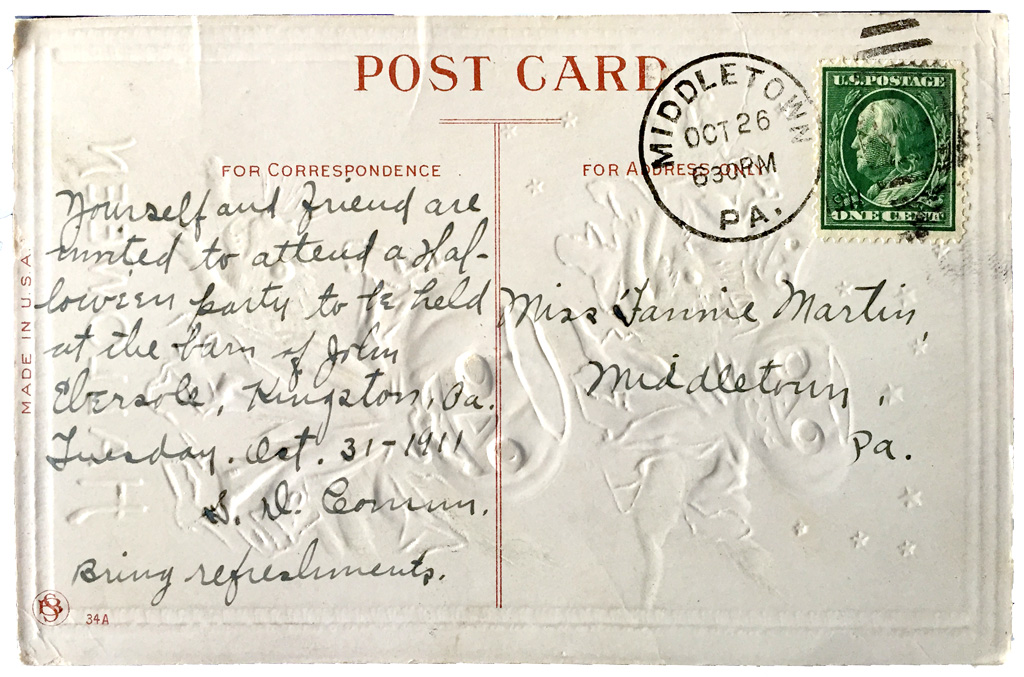 POST CARD
FOR CORRESPONDENCE
FOR ADDRESS ONLY
MIDDLETOWN
OCT 26
630PM
PA.
U.S. POSTAGE
ONE CENT
Yourself and friend are
invited to attend a Hal-
loween party to be held
at the barn of John
Ebersole, Kingston, Pa.
Tuesday. Oct. 31-1911
S. D.
Bring refreshments.
Miss Fannie Martin,
Middletown,
Pa.
MADE IN U.S.A.
34A